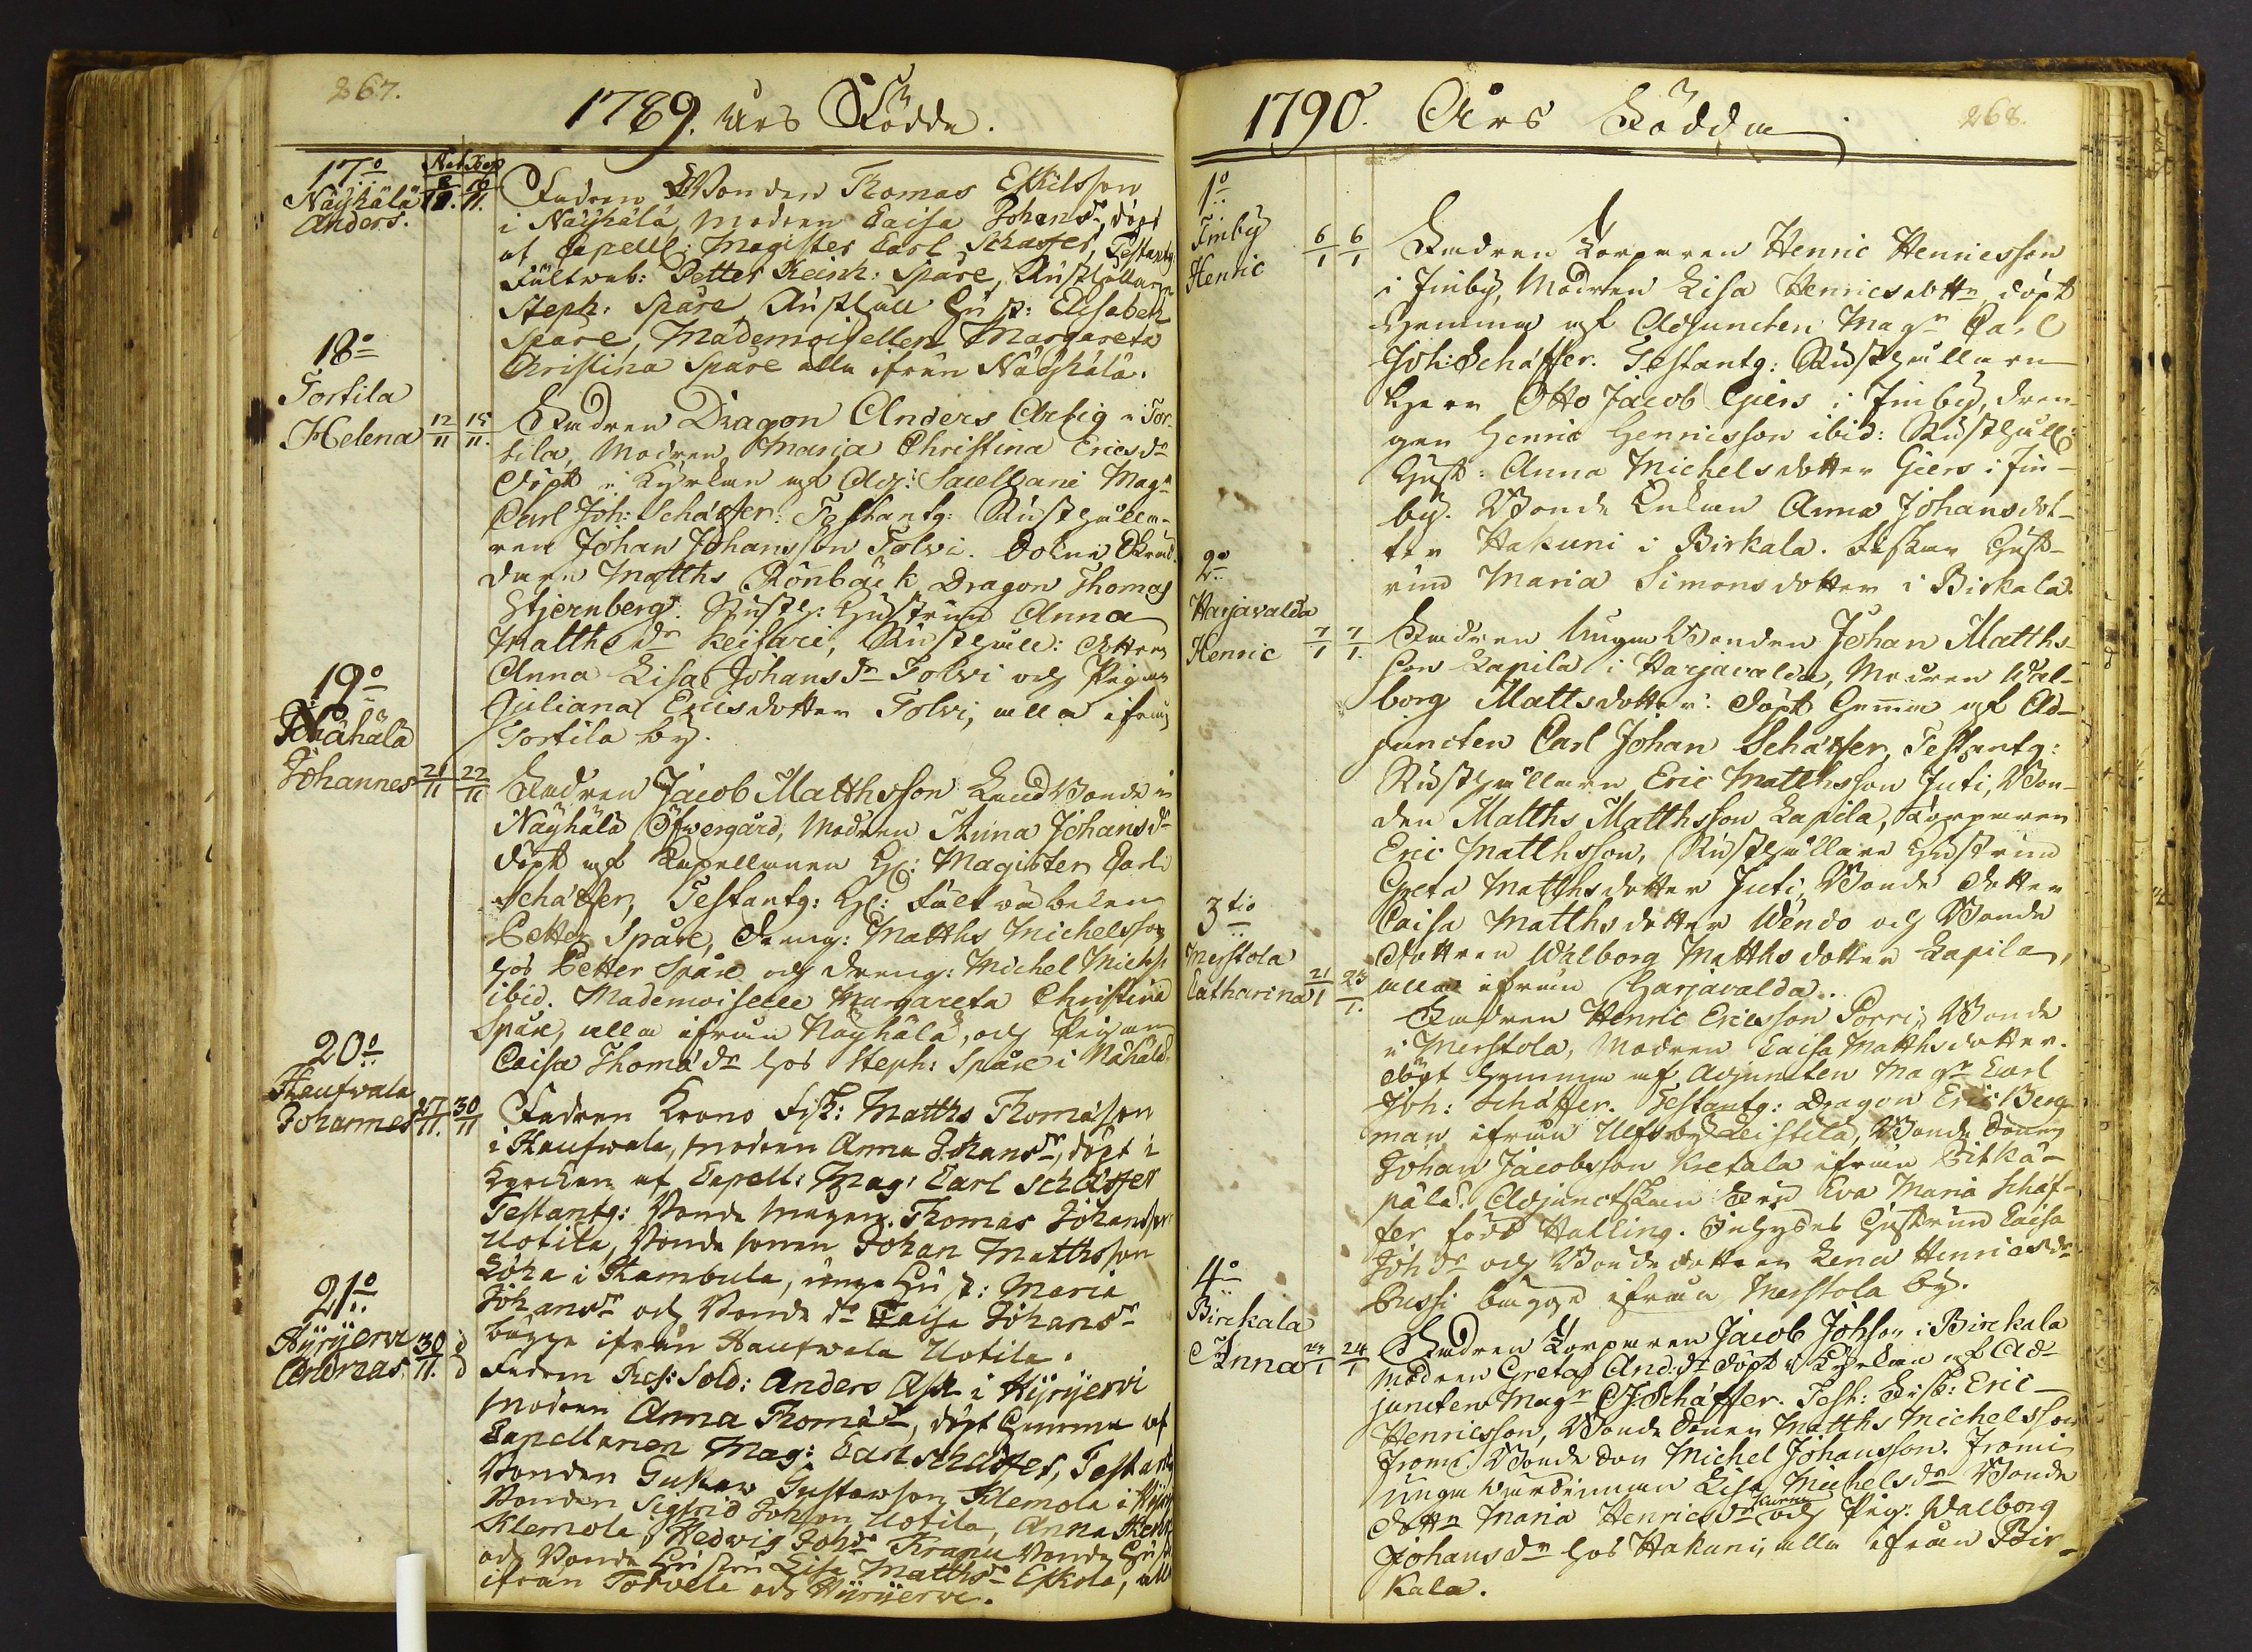 267.
1789. års Födde.
17o Nat. Bapt.
Näyhälä 8/11. 10/11.
Anders.
Fadren Bonden Thomas Eskilsson
i Näyhälä, Modren Caisa Johansdr, döpt
af Capell: Magister Carl Schæffer, Testantg:
Fältweb: Petter Reinh: Spåre, Rusthållaren
Steph: Spåre, Rusthåll Hust: Elisabeth
Spåre, Mademoisellen Margareta
Christina Spåre alla ifrån Näyhälä.
18o
Tortila
Helena 12/11 15/11.
Fadren Dragon Anders Artig i Tor-
tila, Modren Maria Christina Ericsdr
döpt i Kyrkan af Adj: Sacellani Magr
Carl Joh: Schæffer: Testantg: Rusthålla-
ren Johan Johansson Tolvi.
Matths Rönbäck Dragon Thomas
Stjernberg. Rusth: Hustrun Anna
Matthsdr Keisari, Rusthåll: dottren
Anna Lisa Johansdr Tolvi och Pigan
Juliana Ericsdotter Tolvi, alla ifrån
Tortila by.
19o
Nähälä
Johannes 21/11 22/11
Fadren Jacob Matthsson Landbonde i
Näyhälä Öfwergård, Modren Anna Johansdr
döpt af Capellanen H: Magister Carl
Schæffer, Testantg: H: Fältwäbelen
Petter Spåre, Dräng: Matths Michelsson
hos Petter Spåre och Dräng: Michel Michs:
ibid. Mademoiselle Margareta Christina
Spåre, alla ifrån Näyhälä, och Pigan
Caisa Thomædr hos Steph: Spåre i Nähälä.
20o
Haufwala
Johannes 27/11. 30/11
Fadren Krono Fisk: Matths Thomasson
i Haufwala, modren Anna Johansdr, döpt i
Kyrckan af Capell: Mag: Carl Schæffer
Testantg: Bonde mågen Thomas Johansson
Uotila, Bonde sonen Johan Matthsson
i Kambula, unga Hust: Maria
Johansdr och Bonde dr Caisa Johansdr
bägge ifrån Haufwala Uotila.
21o
Hyryerwi 30/11. d d
Andreas.
Fadren Res: Sold: Anders Ask i Hyryerwi
Modren Anna Thomædr, döpt hemma af
Capellanen Mag: Carl Schæffer, Testantg
Bonden Gustav Gustawson Klemola i
Bonden Sigfrid Johsson Uotila, Anna
Klemola, Hedwig Johdr Kranu Bonde Hust
och Bonde Hustru Lisa Matthsdr Eskola, alla
ifrån Torwela och Hyryerwi.
1790. Års Födde 268.
1o
Finby 6/1 6/1
Henric
Fadren Torparen Henric Henricsson
i Finby, Modren Lisa Henricsdottr, döpt
hemma af Adjuncten Magr Carl
Joh: Schæffer. Testantg: Rusthållarn
Herr Otto Jacob Giers i Finby, Drän-
gen Henric Henricsson ibid: Rusthåll:
Hust: Anna Michelsdotter Giers i Fin-
by. Bonde Enkan Anna Johansdot-
ter Hakuni i Birkala. Fiskar Hust-
run Maria Simonsdotter i Birkala.
2o
Harjavalda
Henric 7/1 7/1.
Fadren Unga Bonden Johan Matths-
son Lapila i Harjavalda, Modren Wal-
borg Mattsdotter. döpt hemma af Ad-
juncten Carl Johan Schæffer, Testantg:
Rusthållarn Eric Matthsson Juti, Bon-
den Matths Matthsson Lapila, Torparen
Eric Matthsson, Rusthållare Hustrun
Greta Matthsdotter Juti, Bonde dotter
Caisa Matthsdotter Wendo och Bonde
dottren Walborg Matthsdotter Lapila,
alla ifrån Harjavalda.
3tio
Merstola
Catharina 21/1 23/1.
Fadren Henric Ericsson Porri, Bonde
i Merstola, Modren Caisa Matthsdotter.
döpt hemma af Adjuncten Magr Carl
Joh: Schæffer. Testantg: Dragon Eric Berg-
man ifrån Ulfsby Leistila, Bonde Sonen
Johan Jacobsson Kretala ifrån Pitkä-
pälä. Adjunctskan Fru Eva Maria Schæf-
fer född Halling. Hustrun Caisa
Johdr och Bonde dottren Lena Henricsdr
Pussi bägge ifrån Merstola by.
4o
Birckala
Anna 24/1 24/1
Fadren Torparen Jacob Johsson i Birckala
Modren Greta And:dr döpt i Kyrkan af Ad-
juncten Magr CJ Schæffer. Test: Fisk: Eric
Henricsson, Bonde Sonen Matths Michelsson
Fromi. Bonde Son Michel Johansson. Fromi
unga Wärdinnan Lisa Michelsdr Bonde
dottr Maria Henricsdr Kurru och Pig: Walborg
Johansdr hos Hakuni, alla ifrån Bir-
kala.